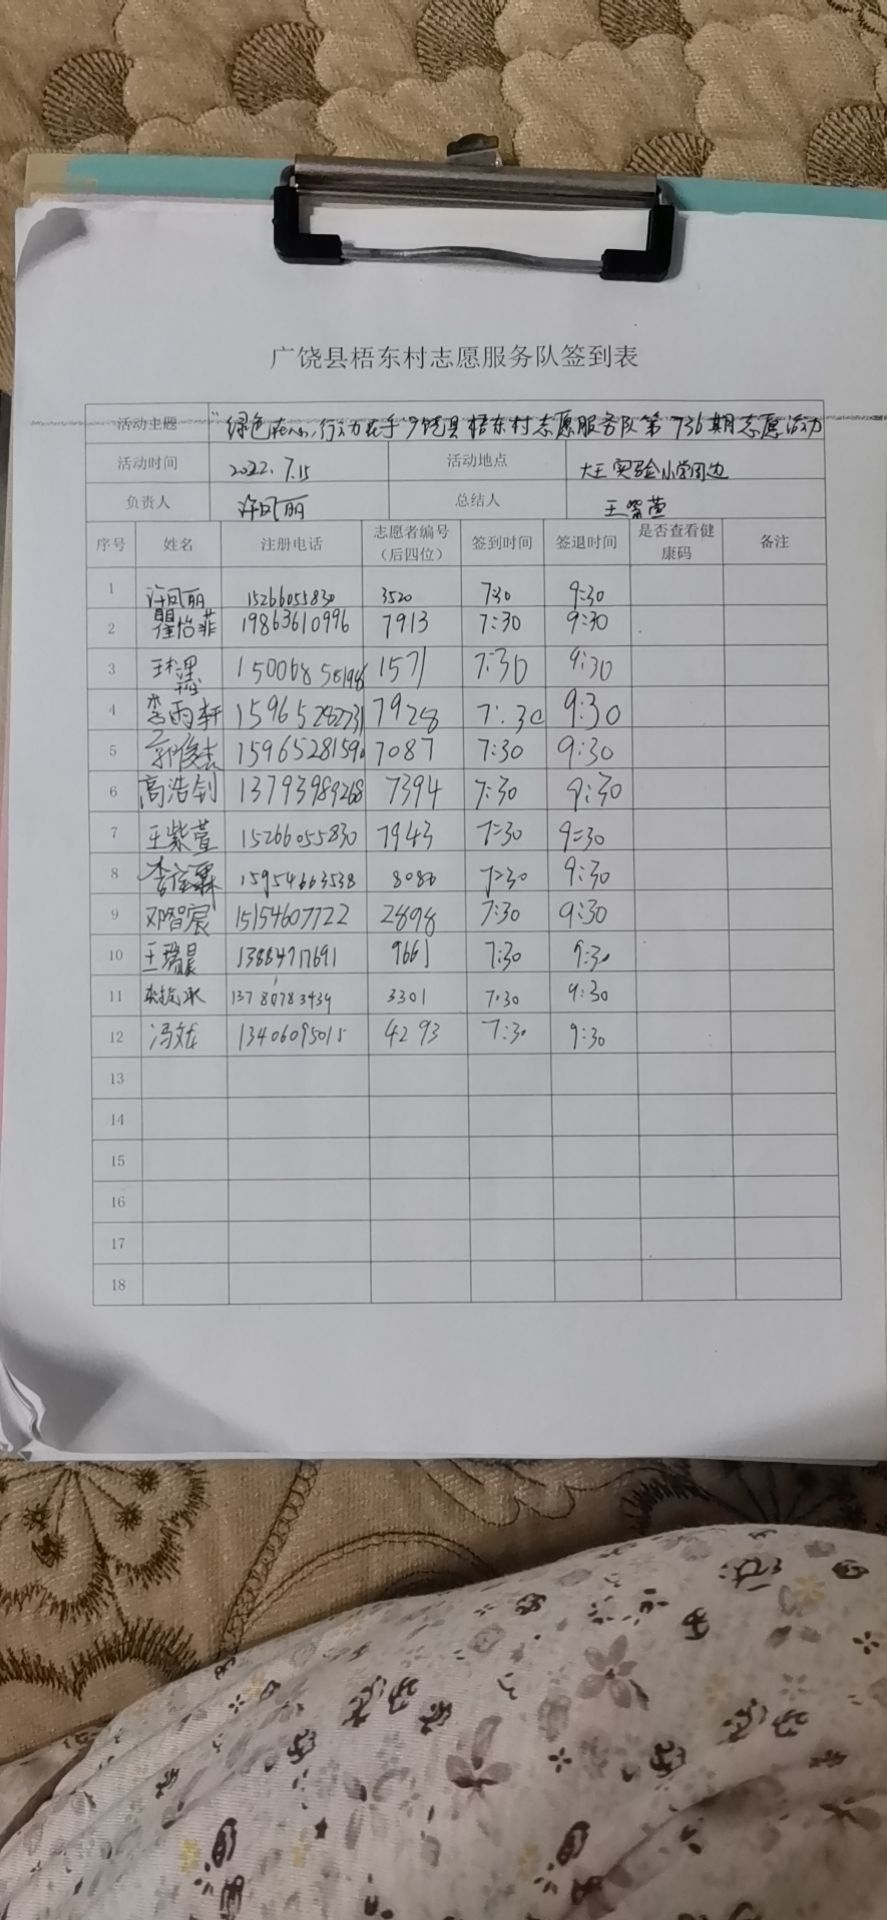 广饶县梧东村志愿服务队签到表
活动主题 "绿色在心,行动在手"广饶县梧东村志愿服务队第736期志愿活动
活动时间 2022.7.15 活动地点 大王实验小学周边
负责人 许风丽 总结人 王紫萱
序号 姓名 注册电话 志愿者编号（后四位） 签到时间 签退时间 是否查看健康码 备注
1 许风丽 15266055830 3520 7:30 9:30
2 瞿怡菲 19863610996 7913 7:30 9:30
3 1571 7:30 9:30
4 李雨轩 15965282731 7928 7:30 9:30
5 郭俊志 15965281590 7087 7:30 9:30
6 高浩钊 13793989268 7394 7:30 9:30
7 王紫萱 15266055830 7943 7:30 9:30
8 15954663538 8080 7:30 9:30
9 邓智宸 15154607722 2898 7:30 9:30
10 王瑞晨 9661 7:30 9:30
11 13780783439 3301 7:30 9:30
12 冯文龙 13406095015 4293 7:30 9:30
13
14
15
16
17
18